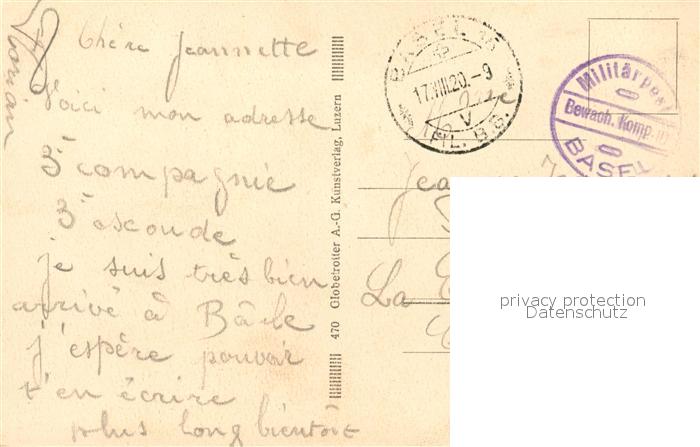 Chère Jeannette
Voici mon adresse
3e compagnie
3e escoude
je suis très bien
arrivé à Bâle
j'espère pouvoir
t'en écrire
plus long bientôt
470 Globetrotter A.-G. Kunstverlag, Luzern
BASEL
17.VIII.20.-9
V
Militärpos
Bewach. Komp.
BASEL
Jea
La
privacy protection
Datenschutz